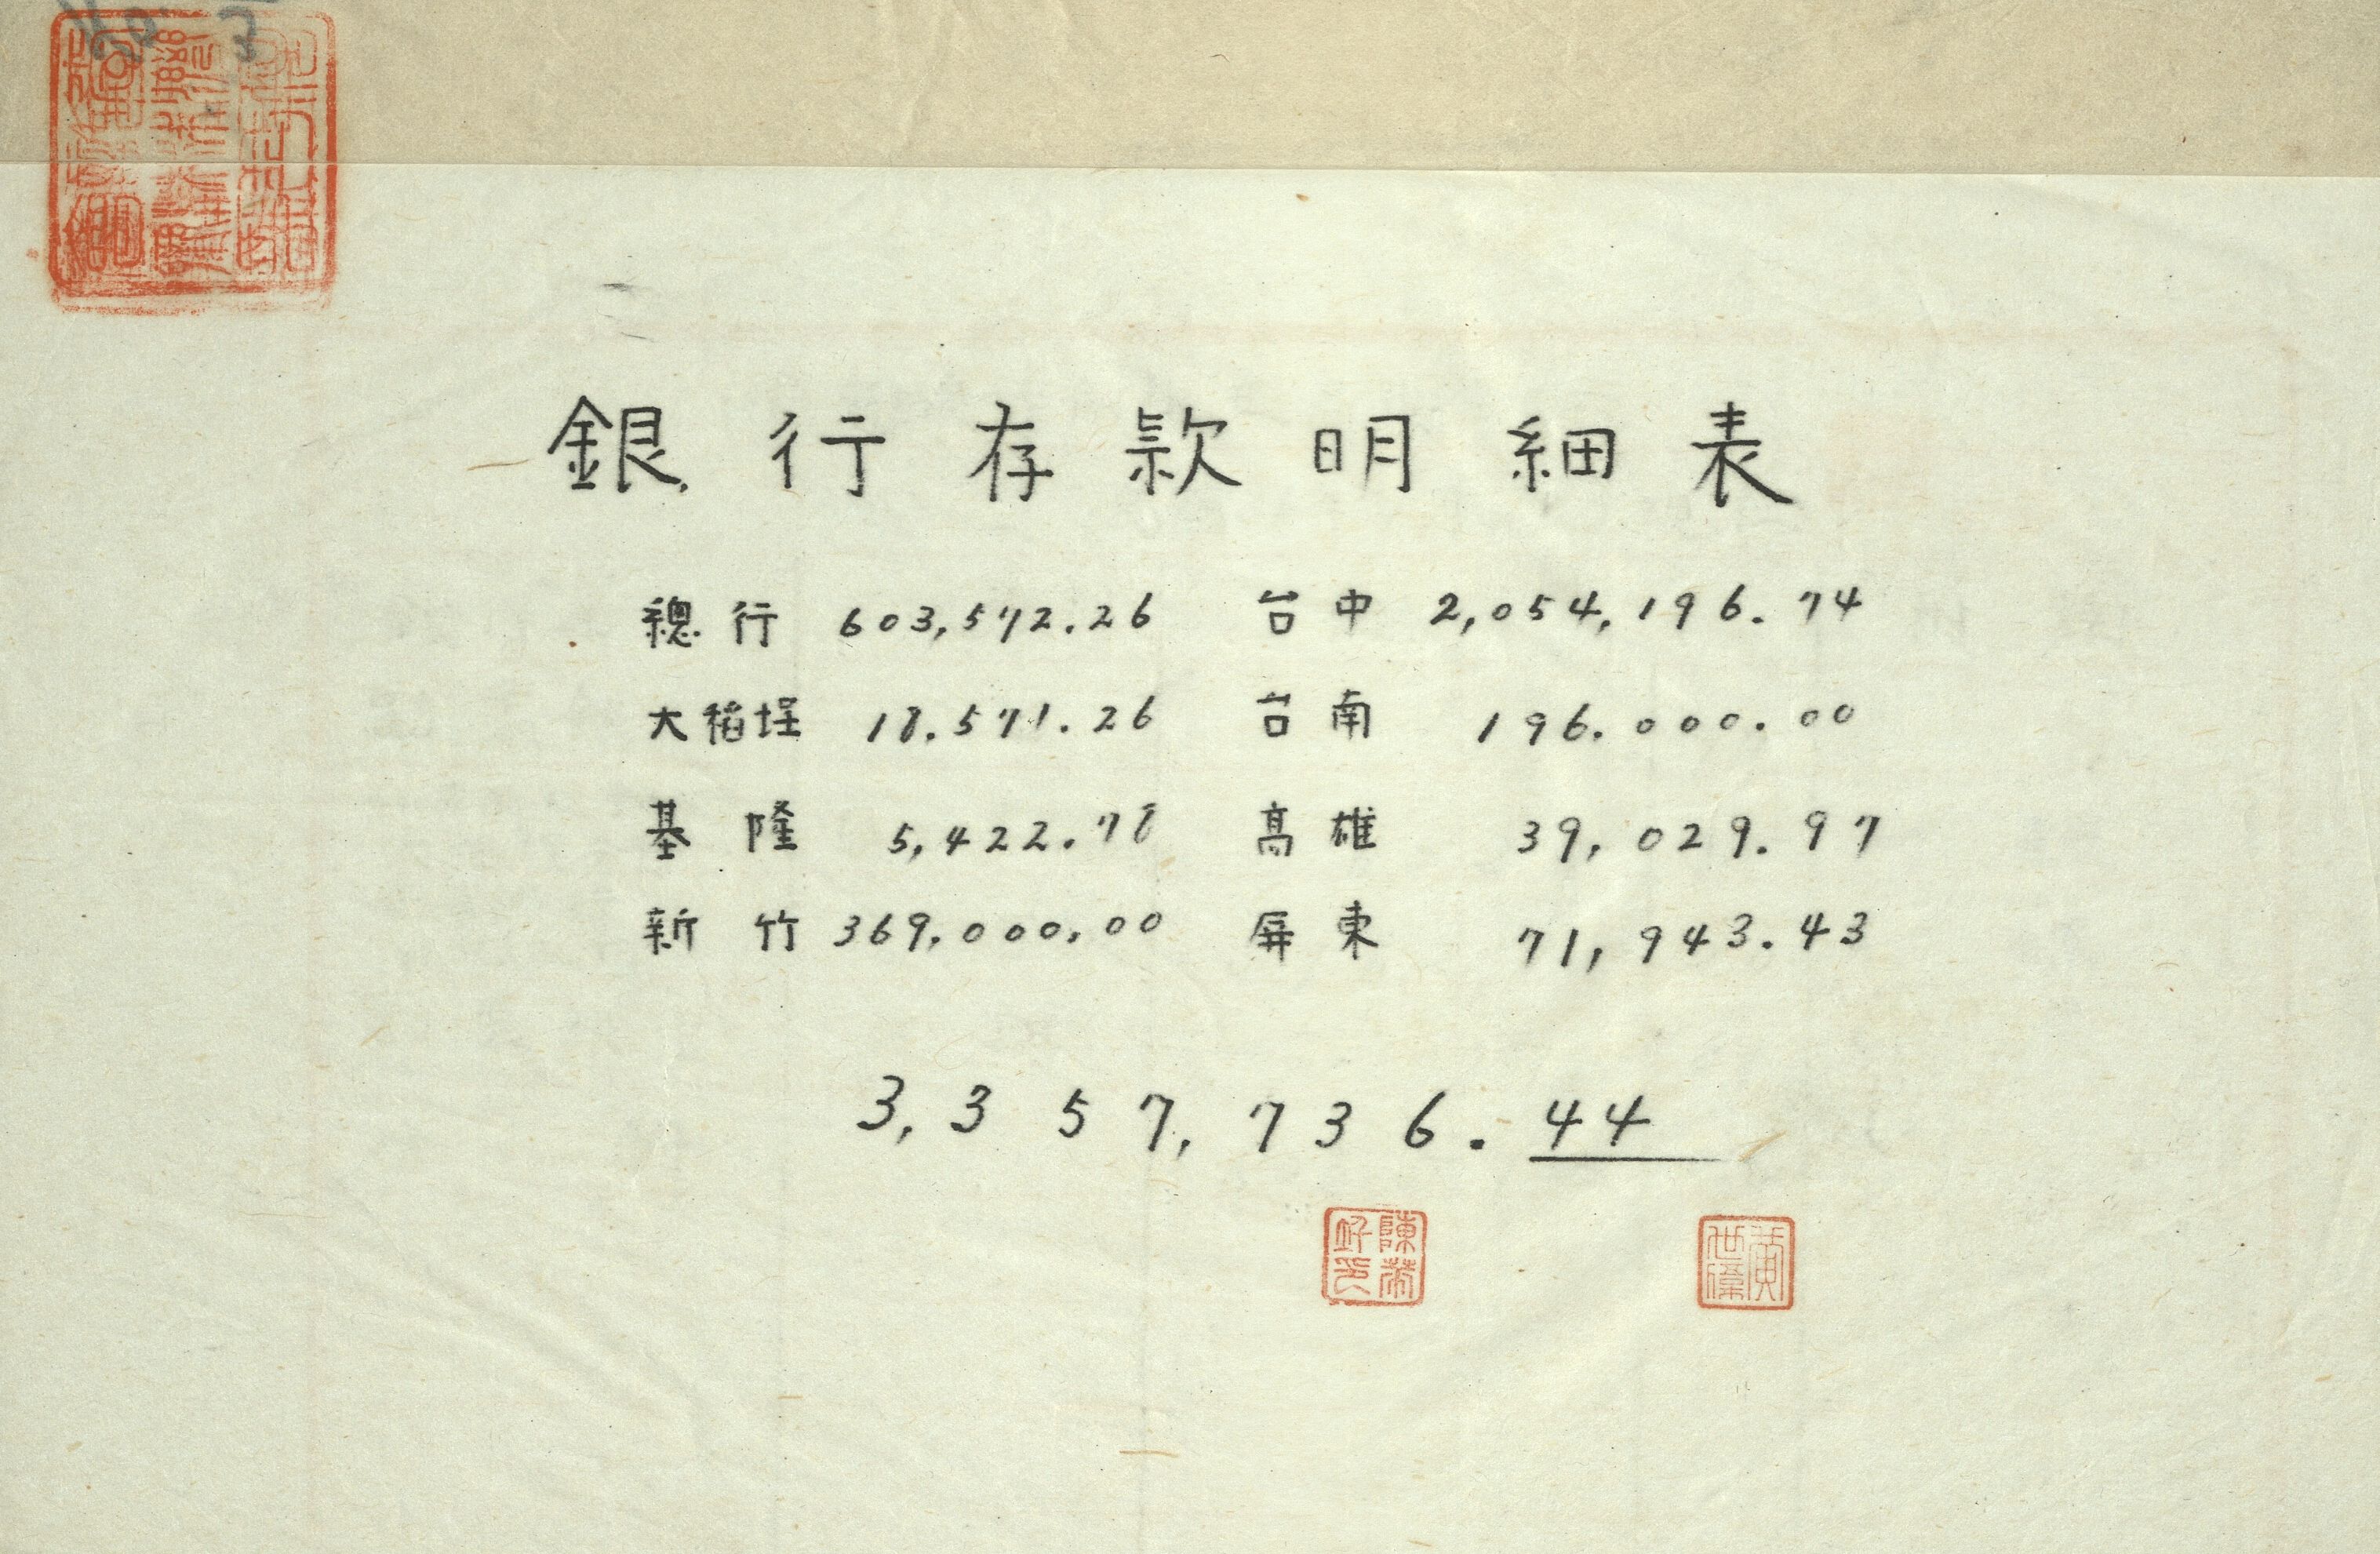 銀行存款明細表
總行 603,572.26 台中 2,054,196.74
大稻埕 18.571.26 台南 196.000.00
基隆 5,422.78 高雄 39,029.97
新竹 369.000.00 屏東 71,943.43
3,357,736.44